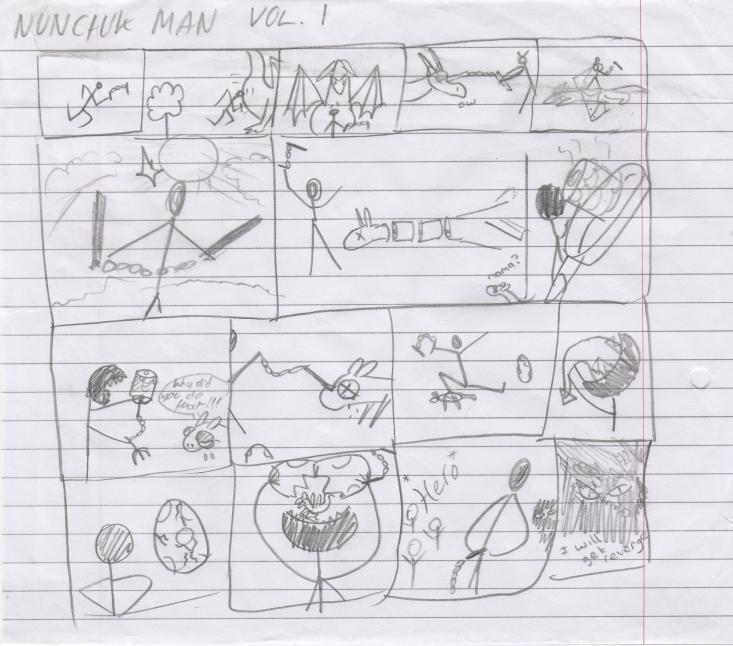 NUNCHUK MAN VOL. 1
OW
mama?
Why did
you do
that!!!
*Hero*
I will
get revenge